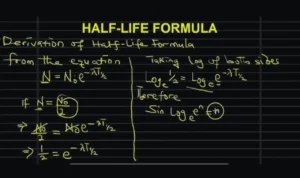 HALF-LIFE FORMULA
Derivation of Half-Life Formula
from the equation
N = N₀e^-λT½
if N = N₀/2
⇒ N₀/2 = N₀e^-λT½
⇒ 1/2 = e^-λT½
Taking log of both sides
Logₑ ½ = Logₑ e^-λT½
Therefore
Sin Logₑ eⁿ = n